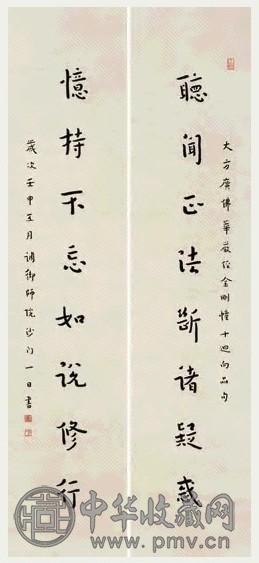 大方廣佛華嚴經金剛幢十迴向品句
聽聞正法斷諸疑惑
憶持不忘如說修行
歲次壬申五月調御師院沙門一日書
中华收藏网
www.pmv.cn